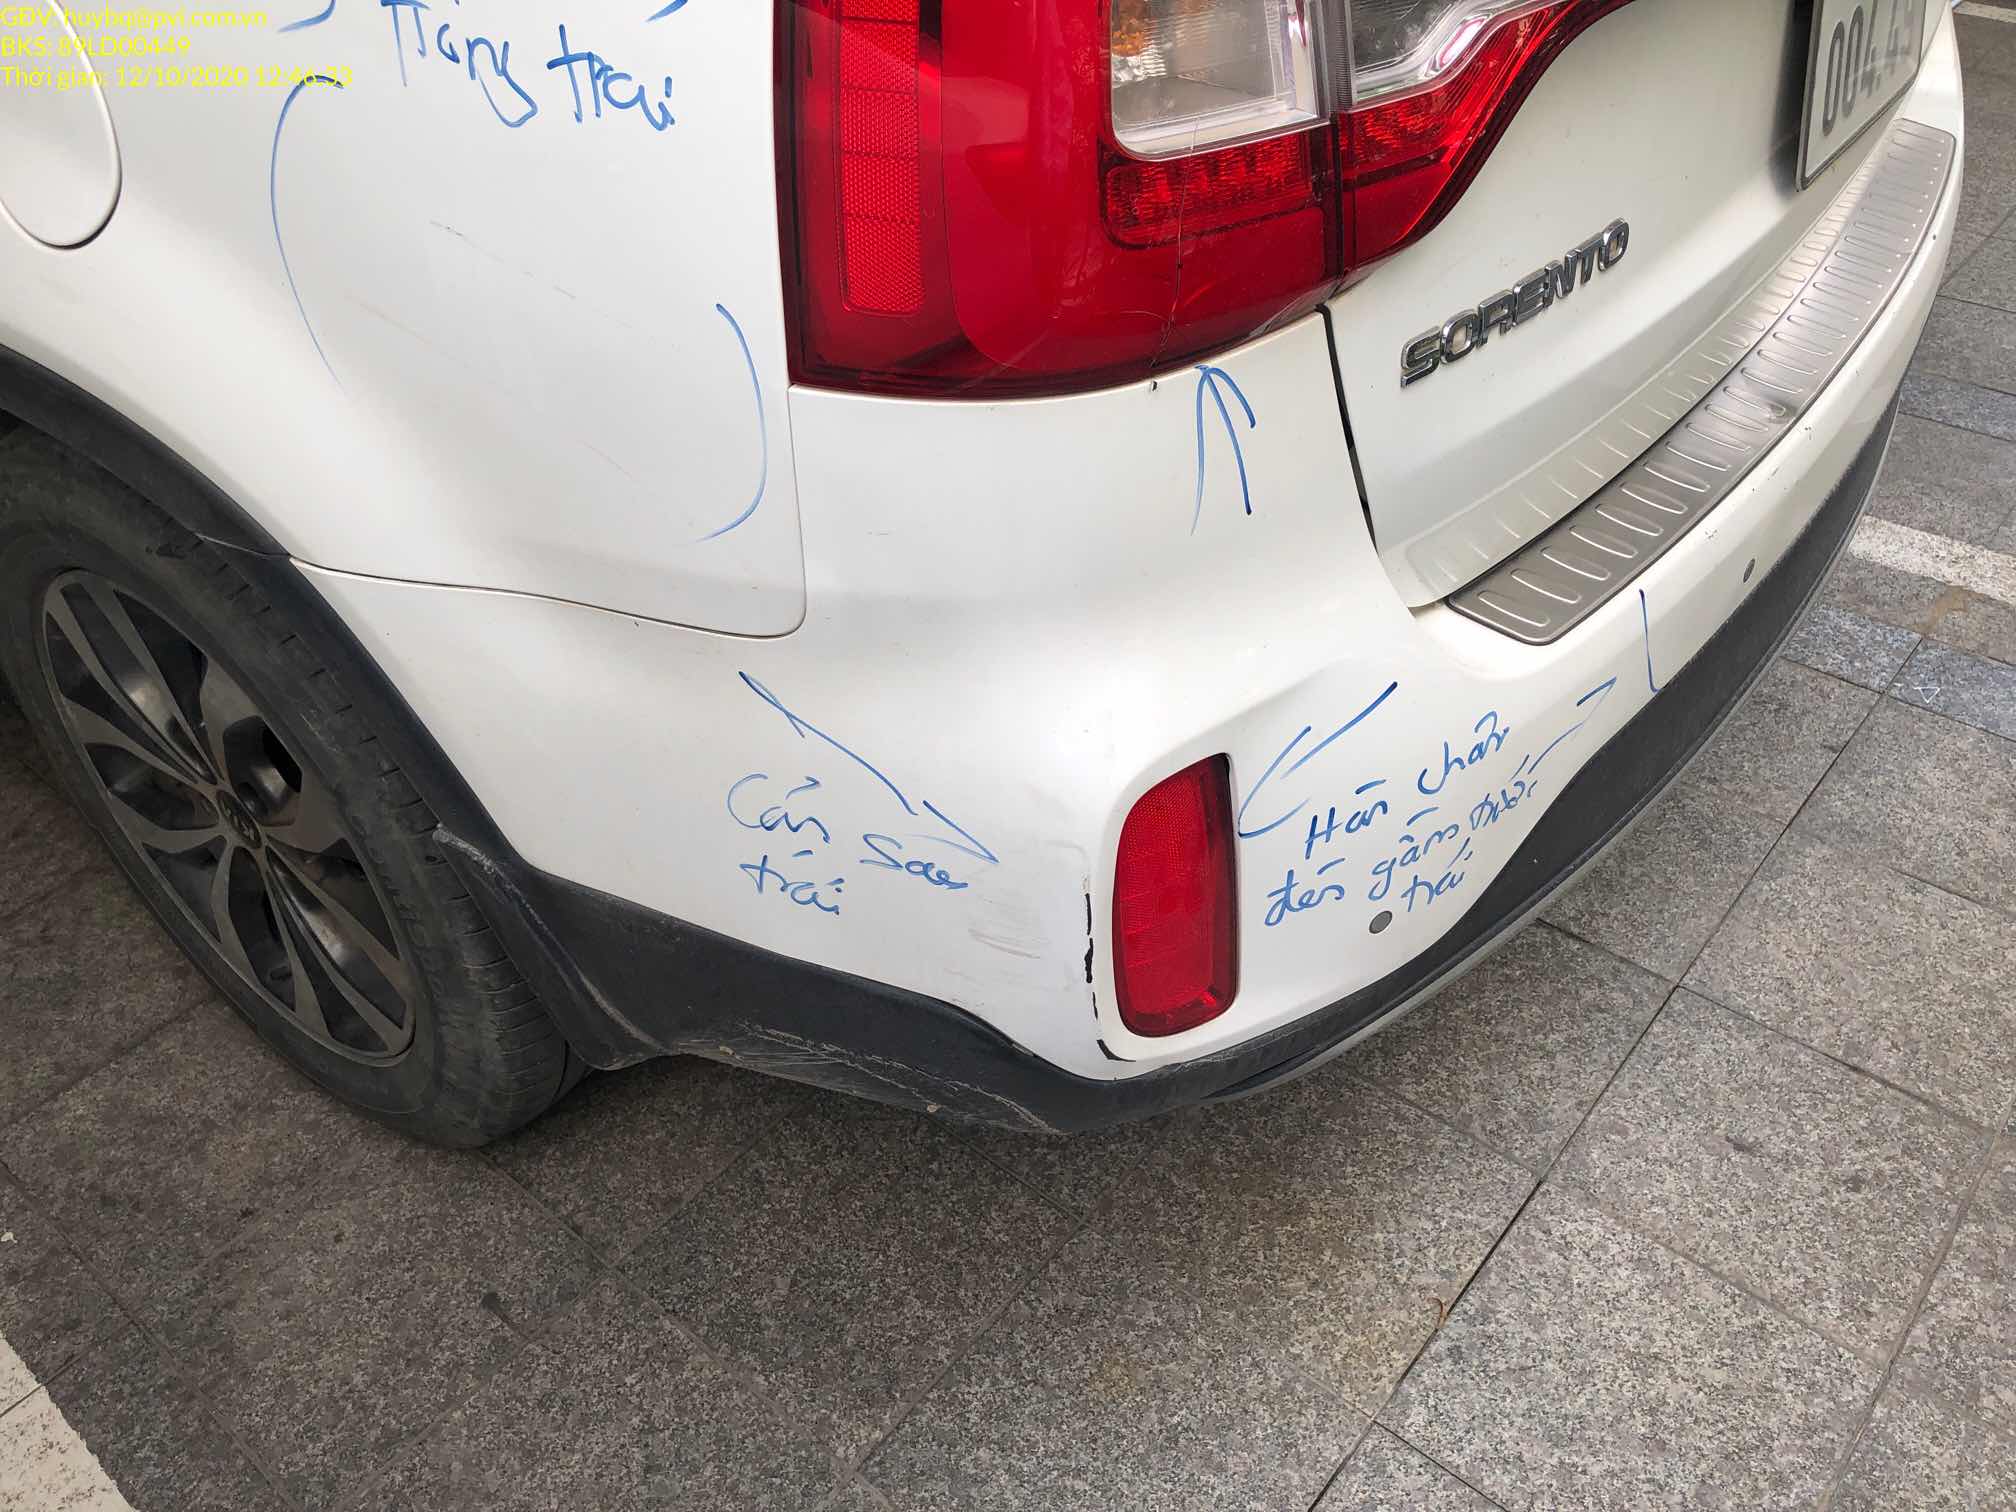 GĐV: huybq@pvi.com.vn
BKS: 89LD00449
Thời gian: 12/10/2020 12:46:33
trái
004.49
SORENTO
Cản sau
trái
Hãn chắn
đèn gầm trước
trái